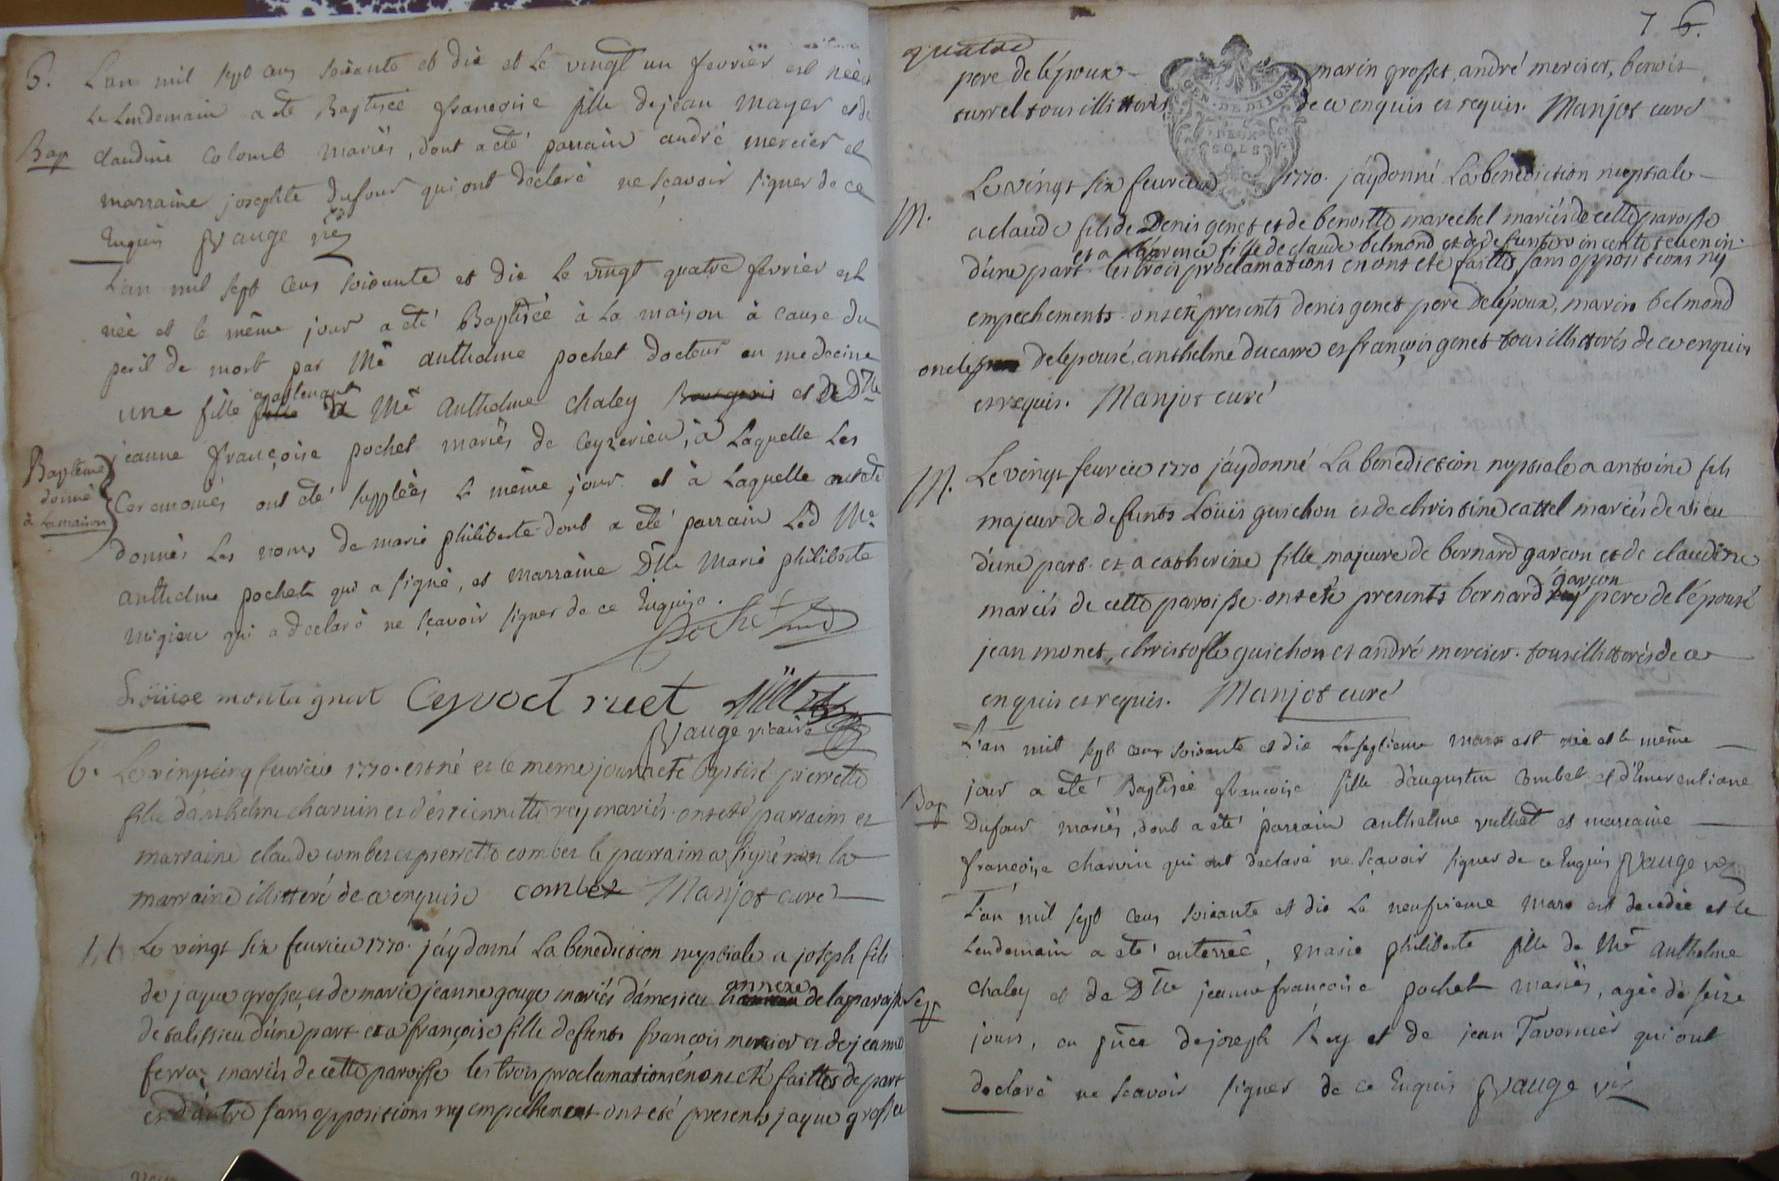 6. L'an mil sept cens soixante et dix et le vingt un fevrier est née et
le lendemain a eté Baptisée françoise fille de jean mayer et de
Bap claudine Colomb mariés, dont a eté parrain andré mercier et
marraine josephte dufour qui ont declaré ne sçavoir signer de ce
Enquis Vauge vic
L'an mil sept cens soixante et dix le vingt quatre fevrier est
née et le même jour a eté Baptisée à la maison à cause du
peril de mort par Me anthelme pochet docteur en medecine
apartenant
une fille a Me Anthelme chaley et De Dlle
jeanne françoise pochet mariés de Ceyzerieu, à laquelle les
Baptême donné à la maison
Ceremonies ont eté supplées le même jour et à laquelle ont eté
donnés les noms de marie philiberte dont a eté parrain led Me
anthelme pochet qui a signé, et marraine Dlle marie philiberte
migieu qui a declaré ne sçavoir signer de ce Enquise.
Pochet
Loüise montagnat Ceyvoct ruet
Vauge vicaire
6. Le vingt cinq feuvrier 1770. est né et le meme jour a eté baptisé pierrette
fille d'anthelme charuin et d'étiennette rey mariés. ont eté parrain et
marraine claude combet et pierrette combet le parrain a signé non la
marraine illitteré de ce enquise combet Manjot curé
M Le vingt six feuvrier 1770. j'ay donné La benediction nuptiale a joseph fils
annexe
de jaque grosset et de marie jeanne gouge mariés d'ameisieu de la paroisse
de talissieu d'une part et a françoise fille defunts françois mercier et de jeanne
ferraz mariés de cette paroisse les trois proclamations en ont eté faittes de part
et d'autre sans oppositions ny empechement ont eté presents jaque grosset
7 6.
quatre
pere de l'époux marin grosset, andré mercier, benoit
currel tous illitterés de ce enquis et requis. Manjot curé
GEN. DE DIJON
DEUX
SOLS
Le vingt six feuvrier 1770. j'ay donné La benediction nuptiale
M. a claude fils de Denis genet et de benoitte marechel mariés de cette paroisse
et a laurence fille de claude belmond et de defunte vincente tevenin
d'une part les trois proclamations en ont eté faittes sans oppositions ny
empechements. ont eté presents denis genet pere de l'époux, marin belmond
oncle de l'epousé, anthelme ducarre et françois genet tous illitterés de ce enquis
et requis. Manjot curé
M. Le vingt feuvrier 1770 j'ay donné La benediction nuptiale a antoine fils
majeur de defunts Loüis guichon et de christine cattel mariés de vieu
d'une part et a catherine fille majeure de bernard garcon et de claudine
garcon
mariés de cette paroisse. ont eté presents bernard pere de l'épousé
jean monet, christofle guichon et andré mercier. tous illitterés de ce
enquis et requis. Manjot curé
L'an mil sept cens soixante et dix le septieme mars est née et le même
jour a eté Baptisée françoise fille d'augustin Combet et d'Emerentiane
Bap
Dufour mariés, dont a eté parrain anthelme vulliet et marraine
françoise charvin qui ont declaré ne sçavoir signer de ce Enquis Vauge vic
L'an mil sept cens soixante et dix le neufvieme mars est decedée et le
lendemain a eté enterrée, marie philiberte fille de Me anthelme
Sep chaley et de Dlle jeanne françoise pochet mariés, agée de seize
jours, en pñce de joseph Rey et de jean Tavernier qui ont
declaré ne sçavoir signer de ce Enquis Vauge vic